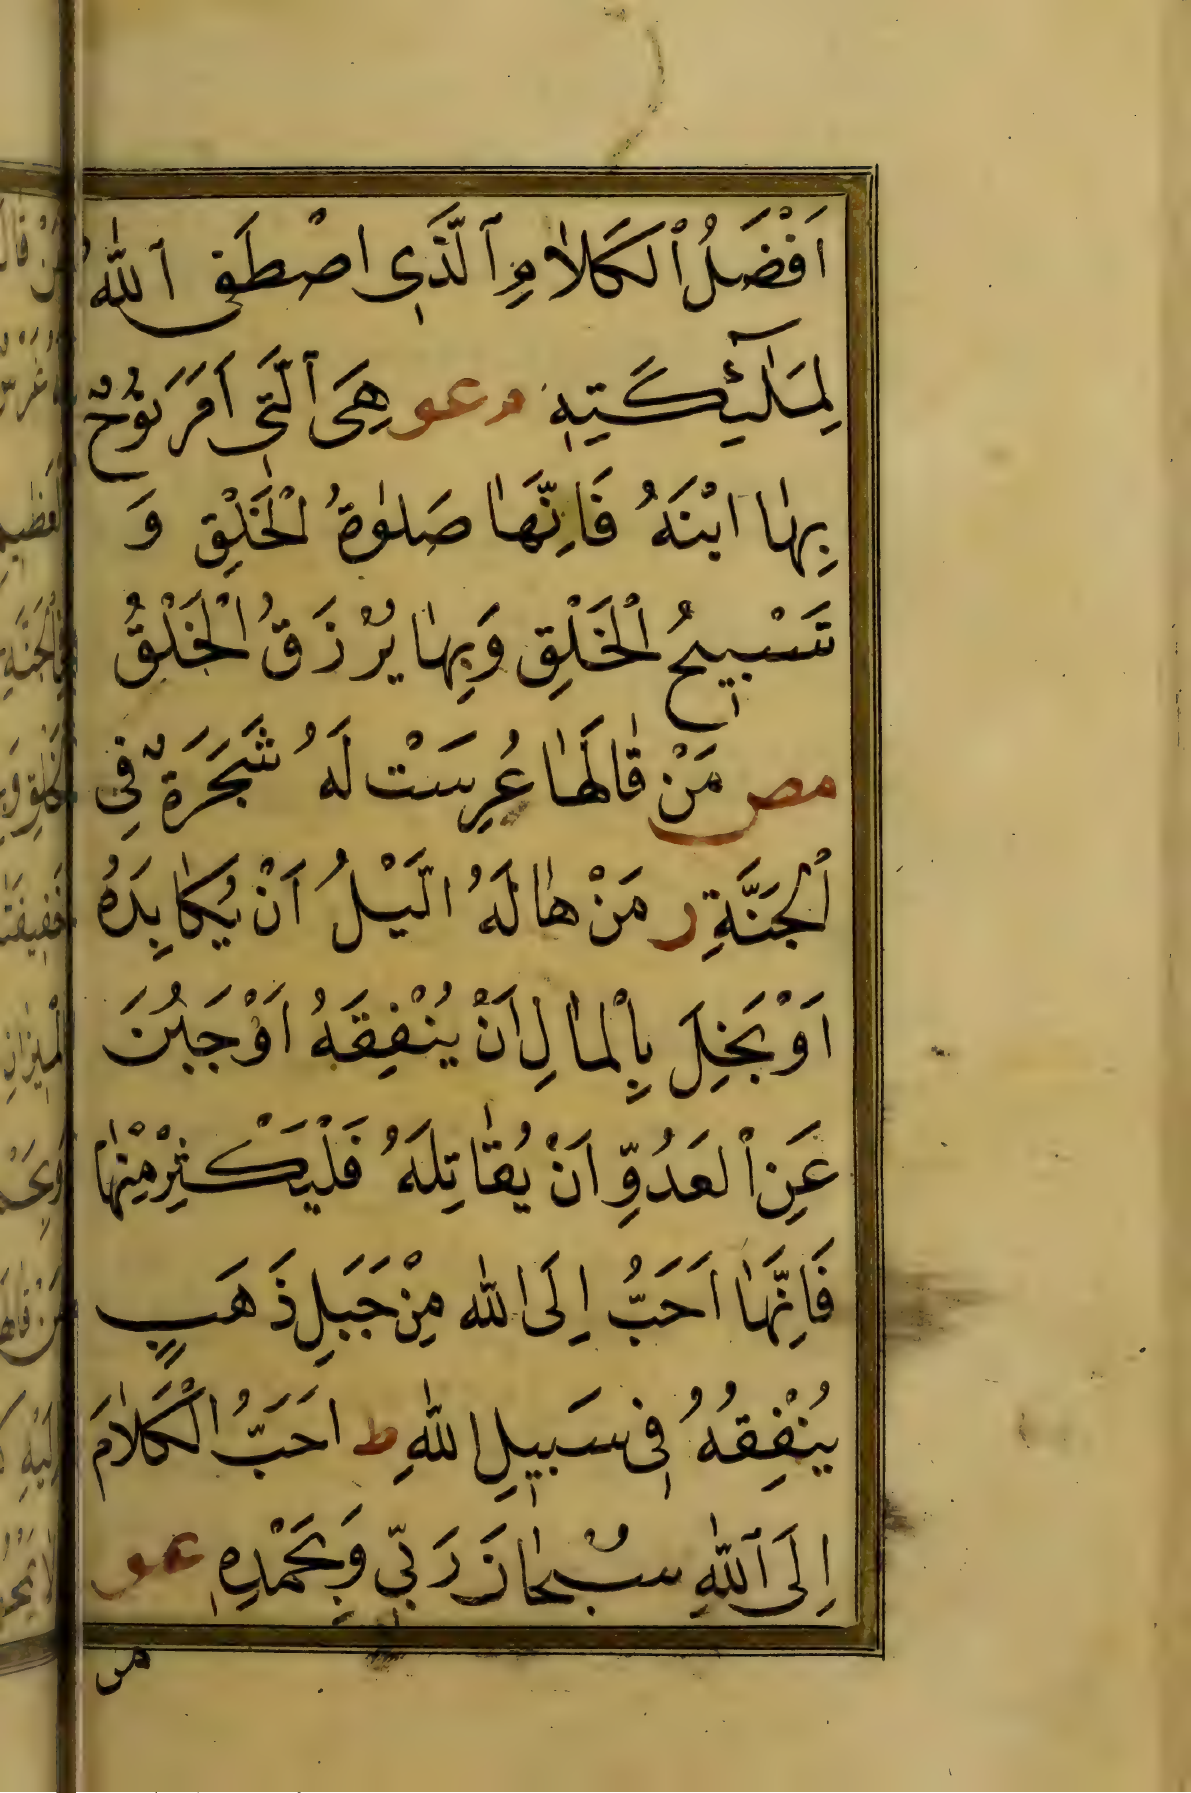 اَفْضَلُ ٱلْكَلاٰمِ ٱلَّذَى اصْطَفَى ٱللّٰهُ
لِمَلٰٓئِكَتِهٖ م عو هِىَ ٱلَّتَى اَمَرَ نوُحٌ
بِهٰا ابْنَهُ فَاِنَّهٰا صَلوٰةُ الْخَلْقِ وَ
تَسْبيٖحُ الْخَلْقِ وَبِهٰا يُرْزَقُ الْخَلْقُ
مص مَنْ قٰالَهٰا غُرِسَتْ لَهُ شَجَرَةٌ فِى
الْجَنَّةِ ر مَنْ هٰالَهُ الَّيْلُ اَنْ يُكٰابِدَهُ
اَوْ بَخِلَ بِالْمٰالِ اَنْ يُنْفِقَهُ اَوْجَبُنَ
عَنِ الْعَدُوِّ اَنْ يُقٰاتِلَهُ فَلْيَكْثِرْ مِنْهٰا
فَاِنَّهٰا اَحَبُّ اِلَى اللّٰه مِنْ جَبَلِ ذَهَبٍ
يُنْفِقُهُ فىٖ سَبيٖلِ اللّٰهِ ط اَحَبُّ الْكَلاٰمَ
اِلَى ٱللّٰهِ سُبْحٰانَ رَبّىٖ وَبِحَمْدِهٖ عو
من